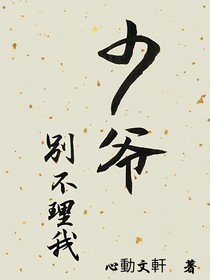 少爷
别不理我
心動文軒 著